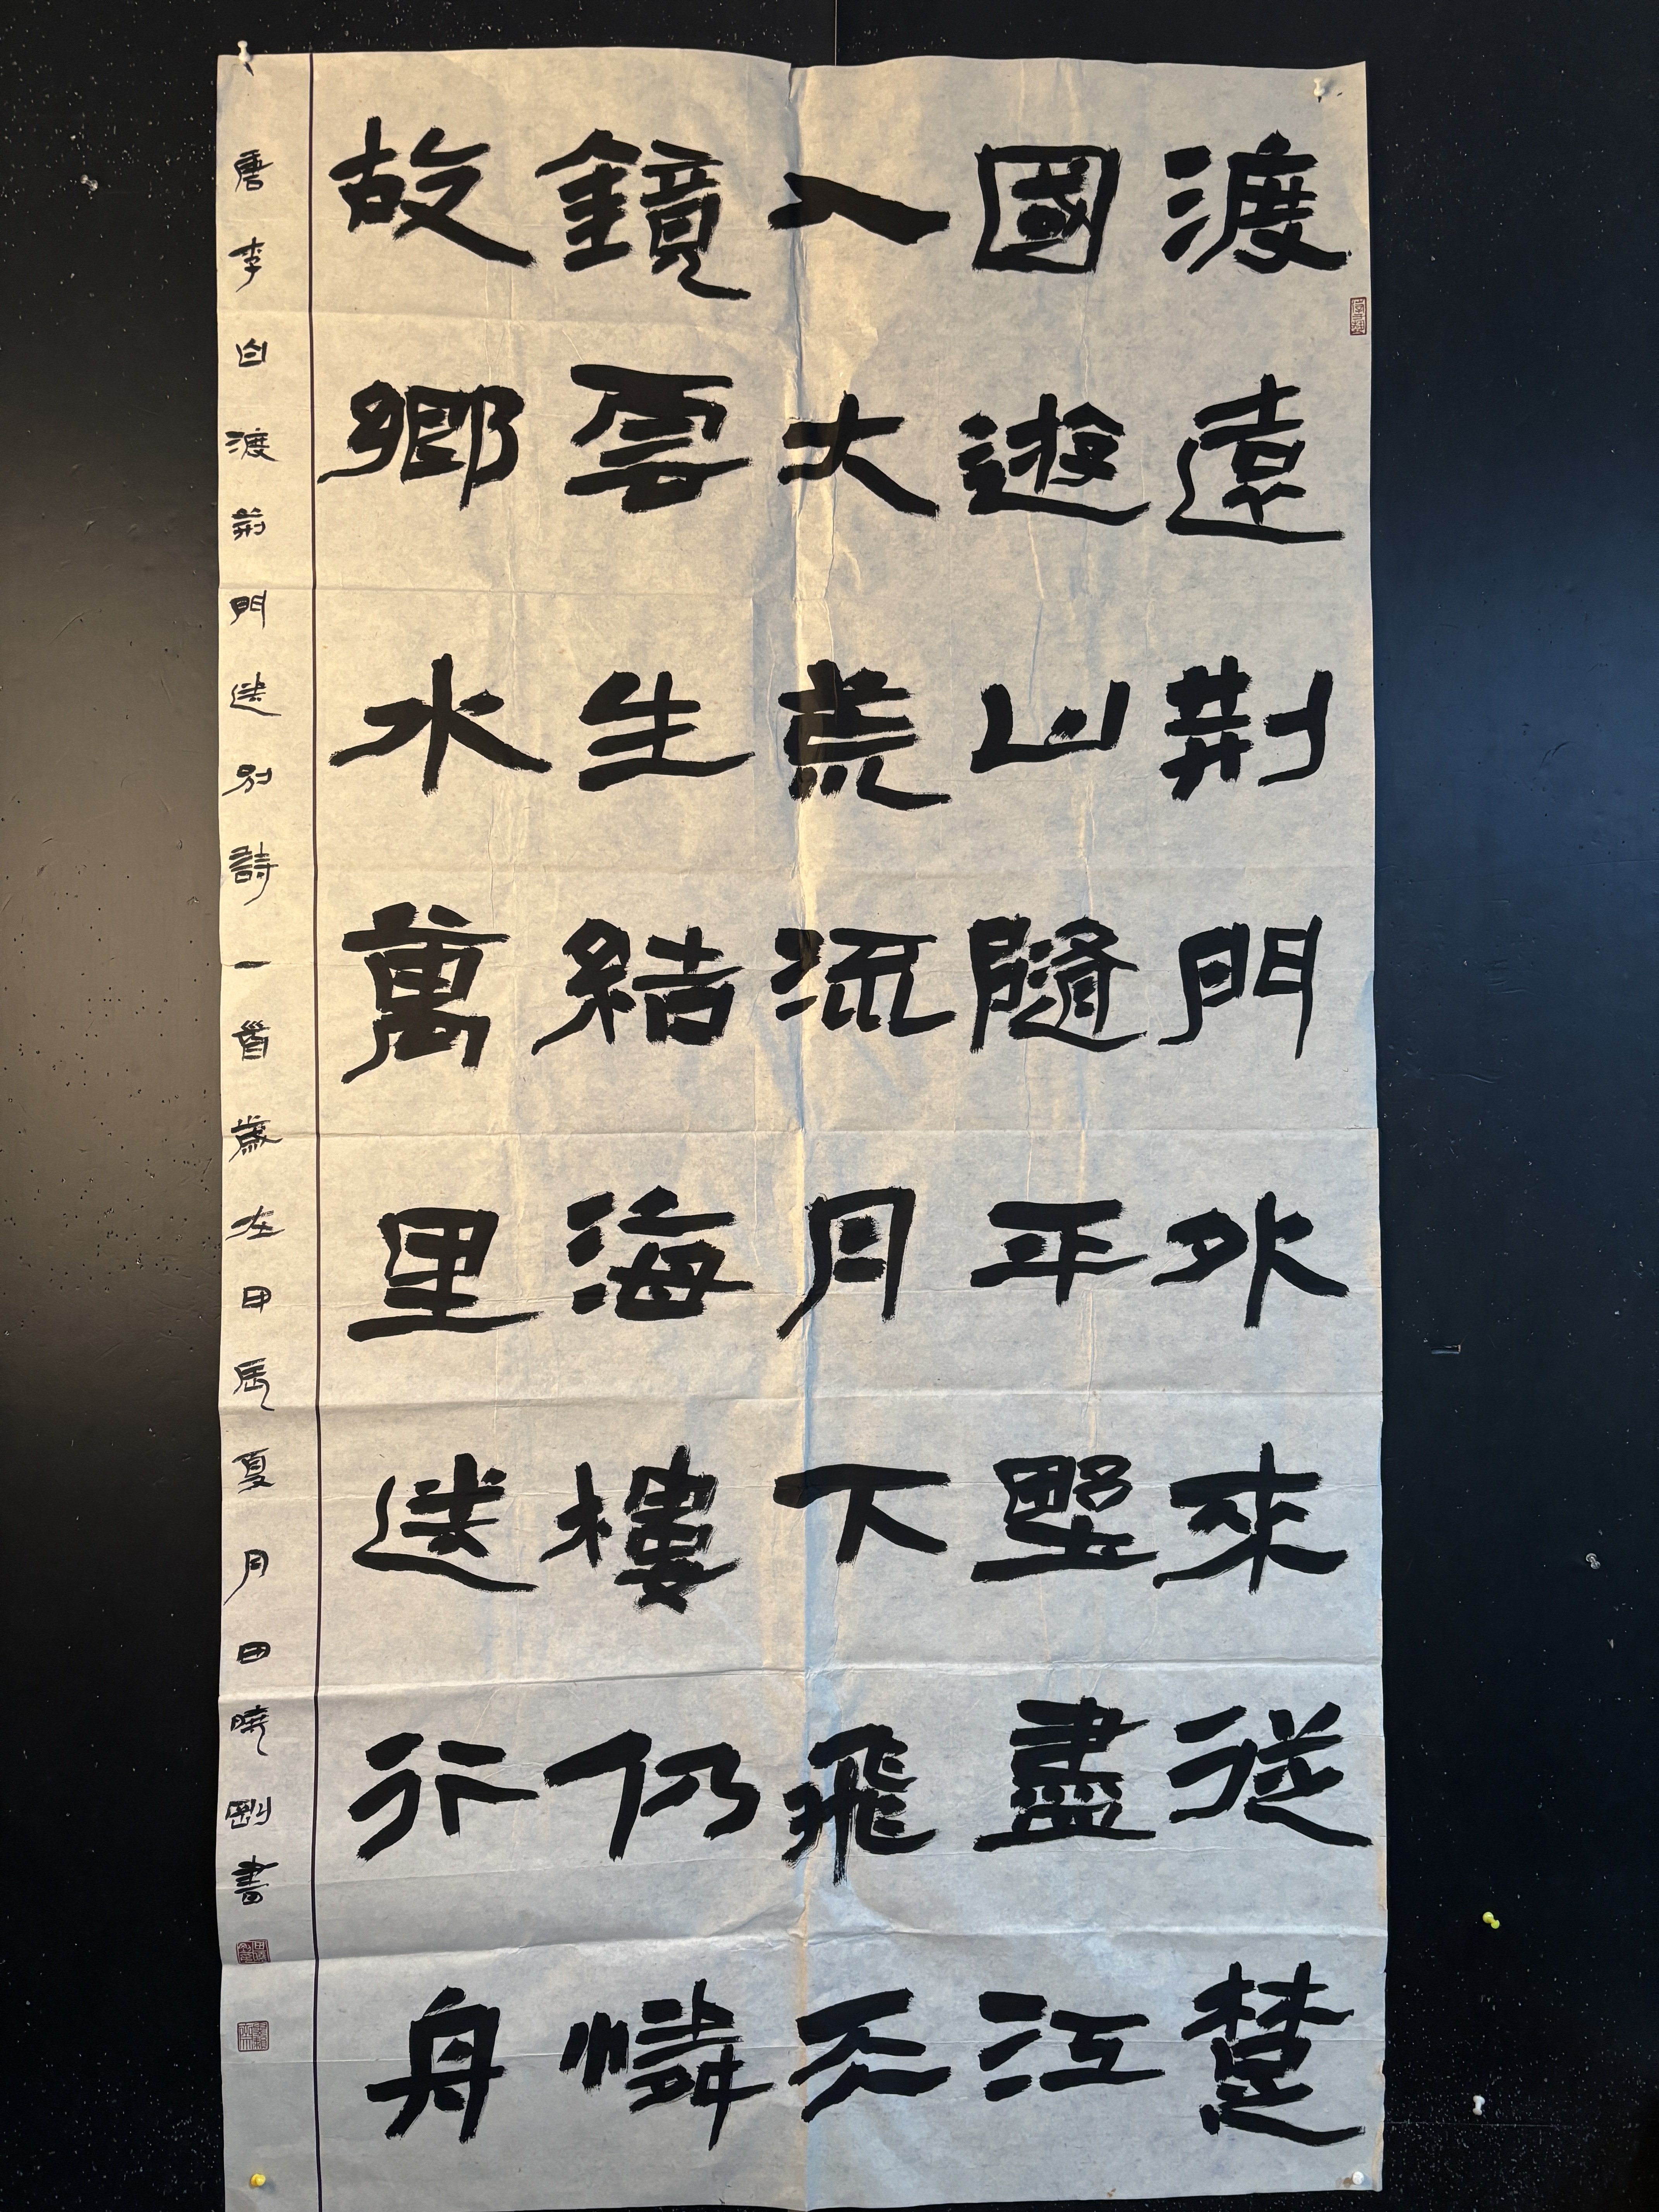 渡遠荊門外來從楚
國遊山隨平墅盡江
入大荒流月下飛天
鏡雲生結海樓仍憐
故鄉水萬里送行舟
唐李白渡荊門送別詩一首歲在甲辰夏月田曉剛書